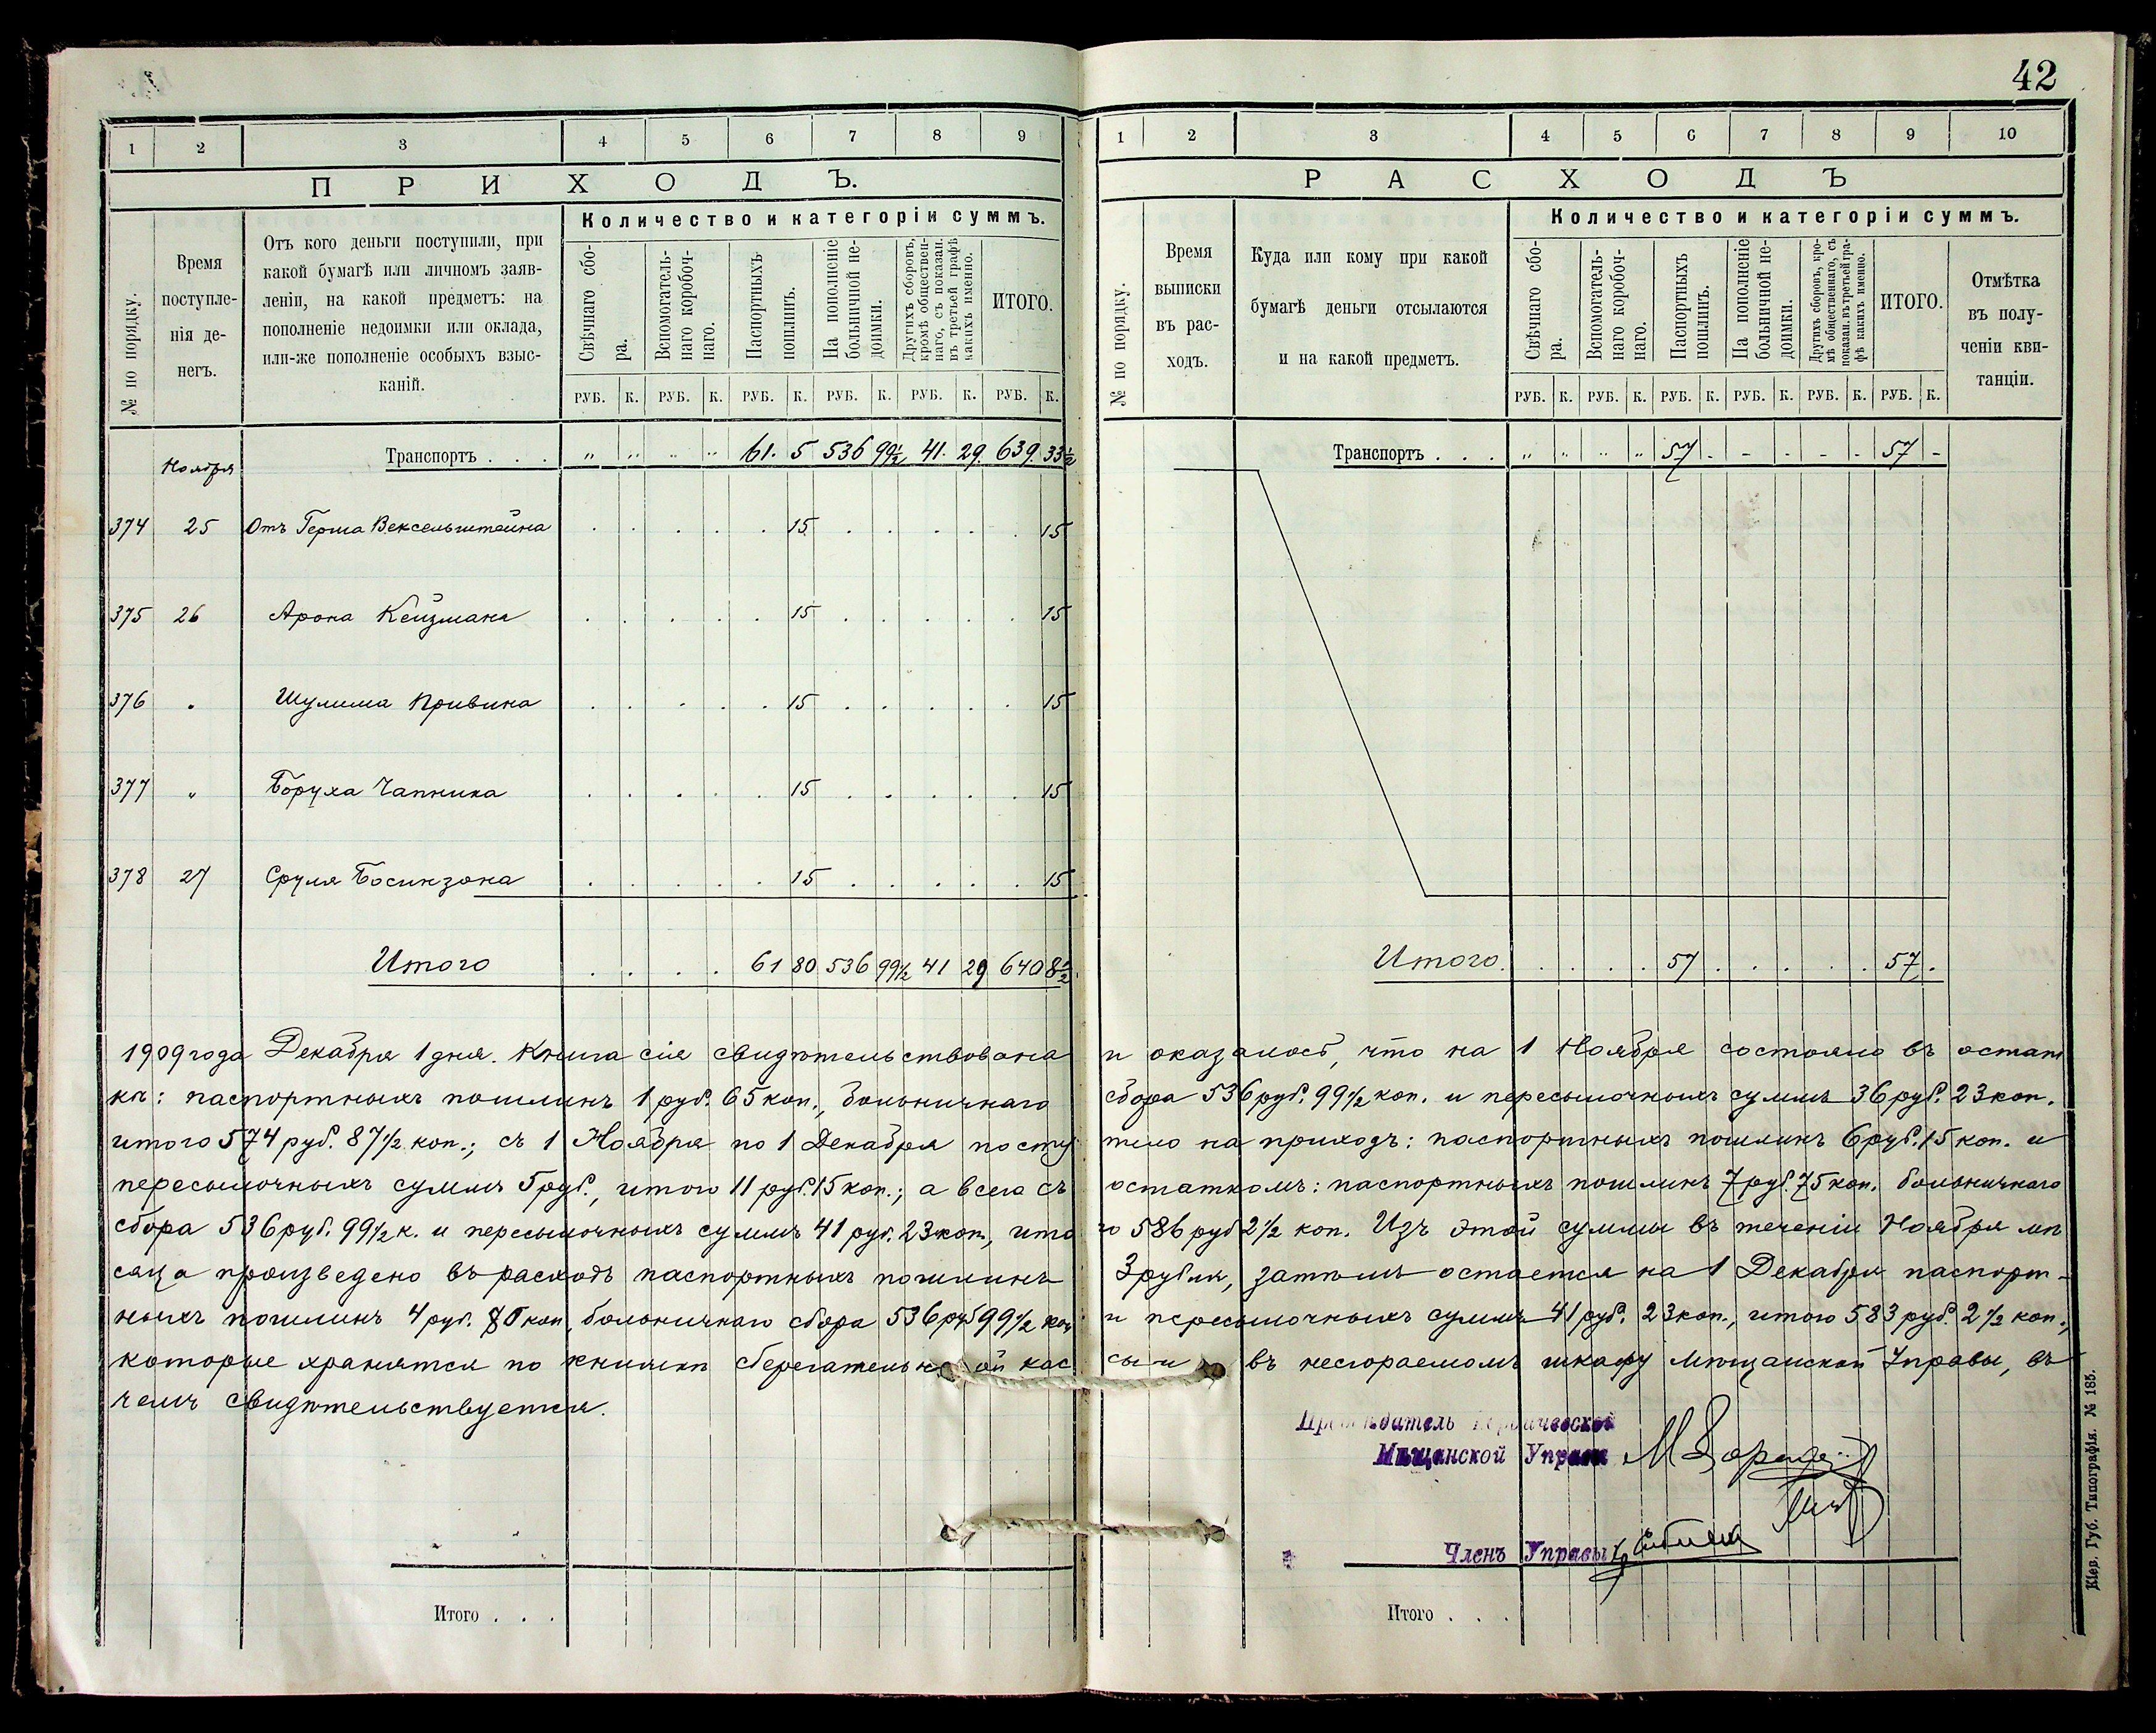 42
1 2 3 4 5 6 7 8 9
ПРИХОДЪ.
№ по порядку.
Время поступле-нія де-негъ.
Отъ кого деньги поступили, при
какой бумагѣ или личномъ заяв-
леніи, на какой предметъ: на
пополненіе недоимки или оклада,
или-же пополненіе особыхъ взыс-
каній.
Количество и категоріи суммъ.
Свѣчнаго сбо-ра.
Вспомогатель-наго коробоч-наго.
Паспортныхъ пошлинъ.
На пополненіе больничной не-доимки.
Другихъ сборовъ, кромѣ обществен-наго, съ показан. въ третьей графѣ какихъ именно.
ИТОГО.
РУБ. К. РУБ. К. РУБ. К. РУБ. К. РУБ. К. РУБ. К.
Ноября Транспортъ . . . „ „ „ „ 61. 5 536 99½ 41. 29. 639. 33½
374 25 Отъ Герша Вексельштейна 15 15
375 26 Арона Кейзмана 15 15
376 „ Шулима Привина 15 15
377 „ Боруха Чапника 15 15
378 27 Сруля Босинзона 15 15
Итого 61 80 536 99½ 41 29 640 8½
1 2 3 4 5 6 7 8 9 10
РАСХОДЪ
№ по порядку.
Время выписки въ рас-ходъ.
Куда или кому при какой
бумагѣ деньги отсылаются
и на какой предметъ.
Количество и категоріи суммъ.
Свѣчнаго сбо-ра.
Вспомогатель-наго коробоч-наго.
Паспортныхъ пошлинъ.
На пополненіе больничной не-доимки.
Другихъ сборовъ, кро-мѣ общественнаго, съ показан. въ третьей гра-фѣ какихъ именно.
ИТОГО.
Отмѣтка въ полу-ченіи кви-танціи.
РУБ. К. РУБ. К. РУБ. К. РУБ. К. РУБ. К. РУБ. К.
Транспортъ . . . „ „ „ „ 57 - - - - - 57 -
Итого 57 57
1909 года Декабря 1 дня. Книга сія свидѣтельствована и оказалось, что на 1 Ноября состояло въ остат
кѣ: паспортныхъ пошлинъ 1 руб. 65 коп., больничнаго сбора 536 руб. 99½ коп. и пересылочныхъ суммъ 36 руб. 23 коп.
итого 574 руб. 87½ коп.; съ 1 Ноября по 1 Декабря посту пило на приходъ: паспортныхъ пошлинъ 6 руб. 15 коп. и
пересылочныхъ суммъ 5 руб., итого 11 руб. 15 коп.; а всего съ остаткомъ: паспортныхъ пошлинъ 7 руб. 75 коп. больничнаго
сбора 536 руб. 99½ к. и пересылочныхъ суммъ 41 руб. 23 коп., ито го 586 руб 2½ коп. Изъ этой суммы въ теченіи Ноября мѣ
сяца произведено въ расходъ паспортныхъ пошлинъ 3 рубля, затѣмъ остается на 1 Декабря паспорт-
ныхъ пошлинъ 4 руб. 80 коп., больничнаго сбора 536 руб 99½ коп и пересылочныхъ суммъ 41 руб. 23 коп., итого 583 руб. 2½ коп.,
которые хранятся по книжкѣ сберегательной кас сы и въ несгораемомъ шкафу Мѣщанской Управы, въ
чемъ свидѣтельствуется.
Предсѣдатель Бердичевской
Мѣщанской Управы
Членъ Управы
Итого . . .
Итого . . .
Кіев. Губ. Типографія. № 185.